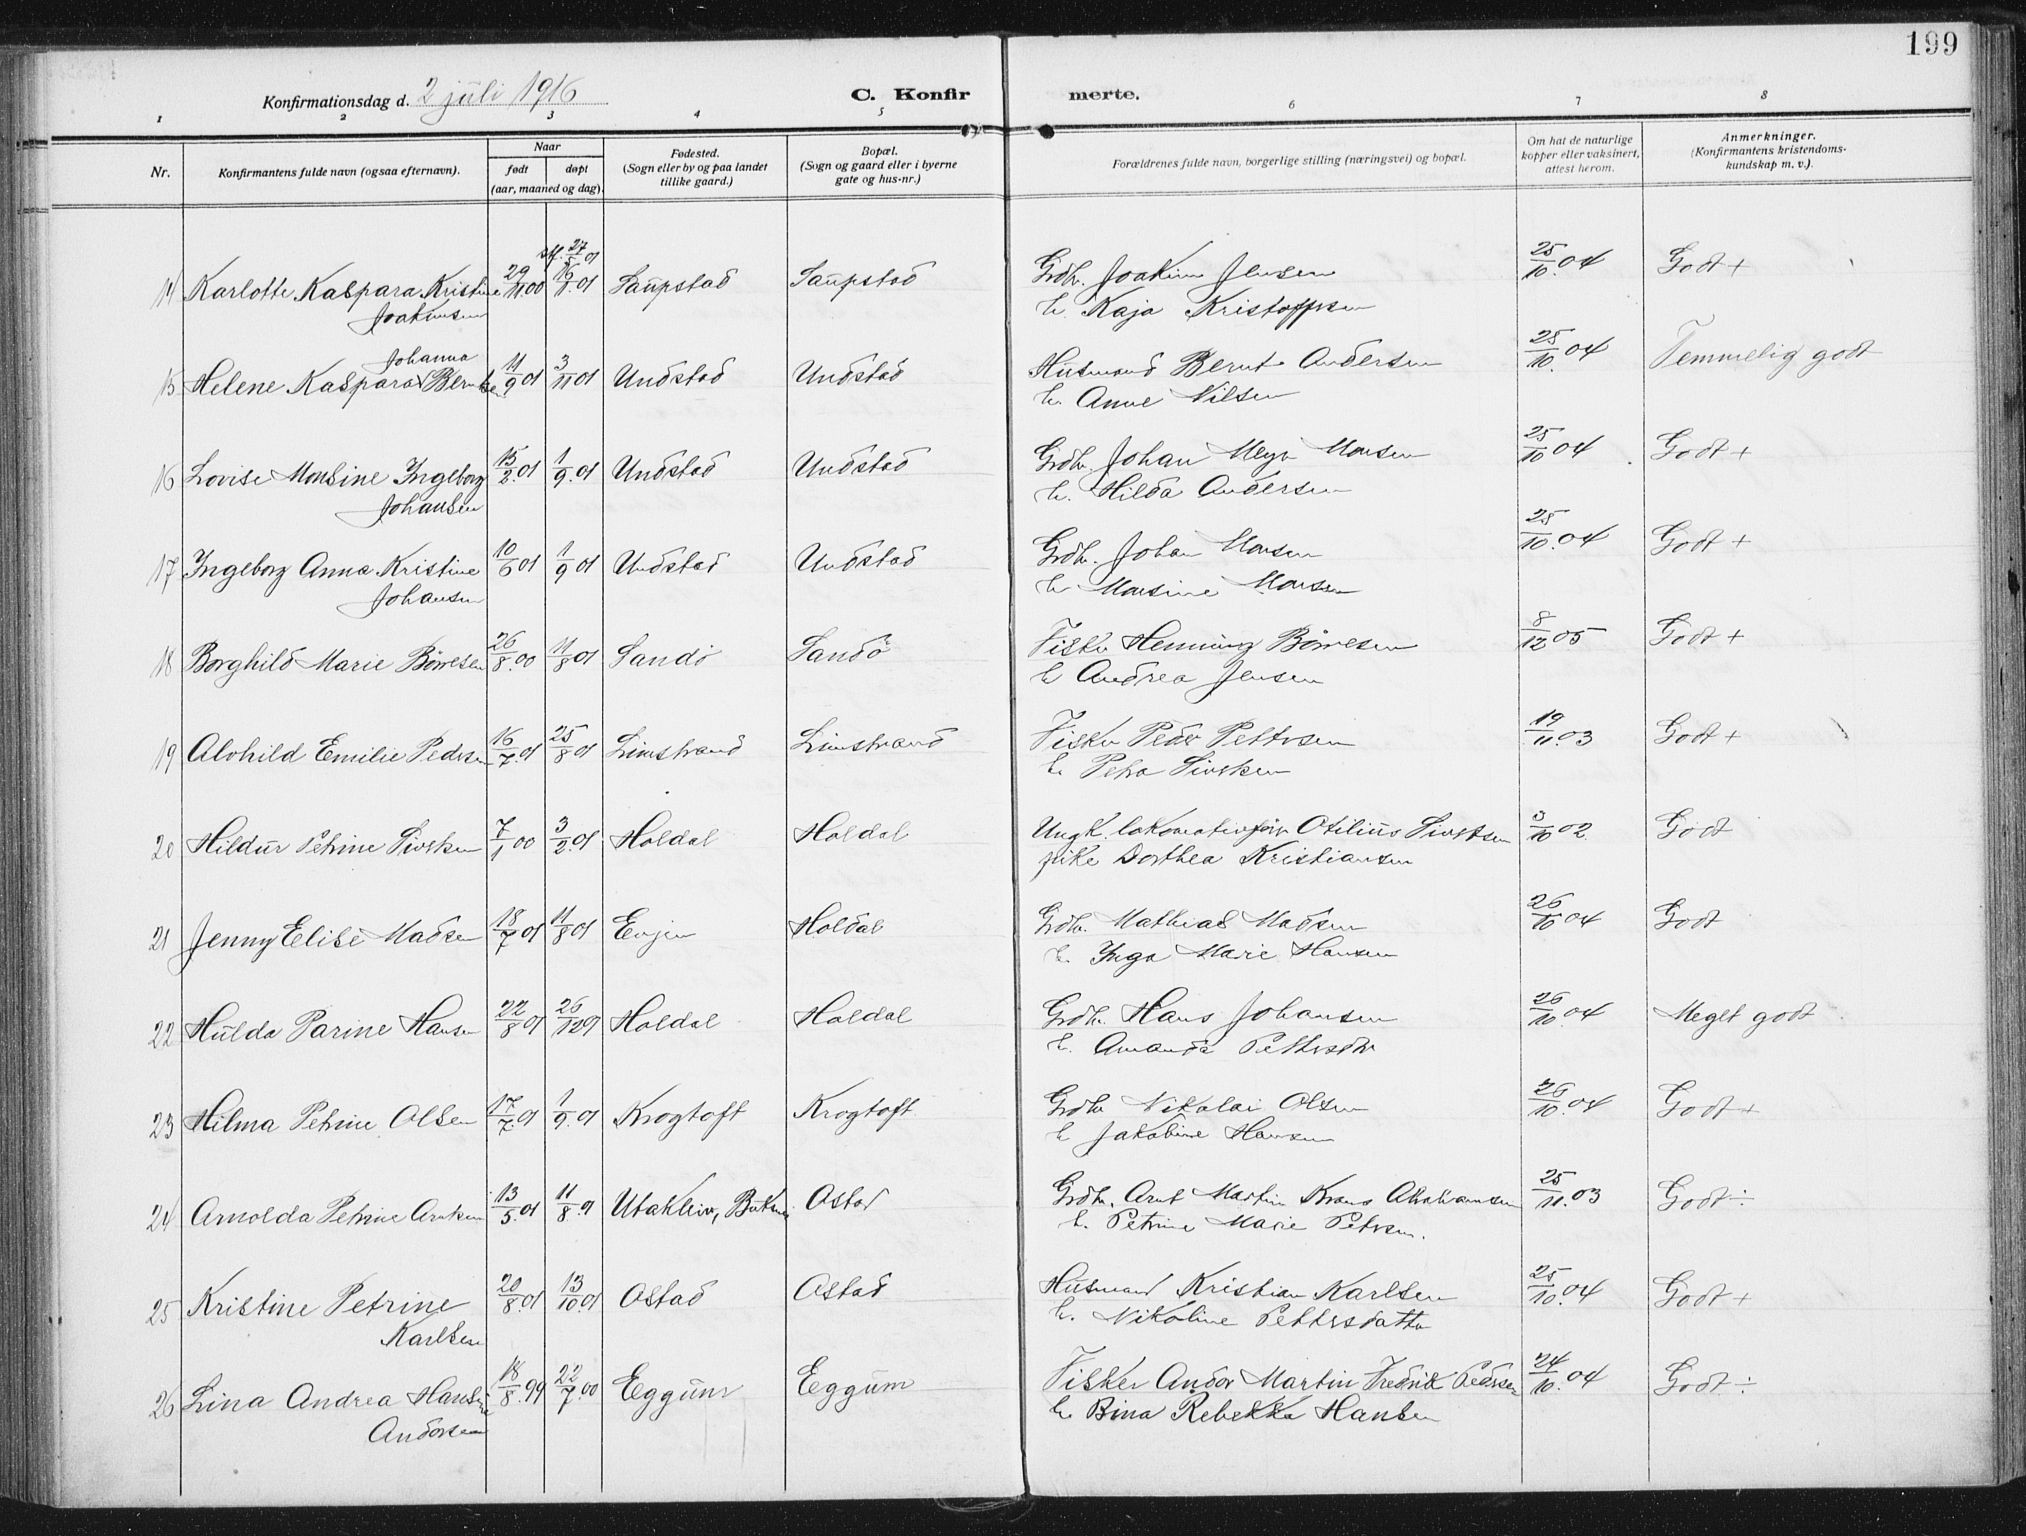 199
Konfirmationsdag d. 2 juli 1916 C. Konfirmerte.
1 2 3 4 5 6 7 8
Nr. Konfirmantens fulde navn (ogsaa efternavn). Naar født døpt (aar, maaned og dag). Fødested. (Sogn eller by og paa landet tillike gaard.) Bopæl. (Sogn og gaard eller i byerne gate og hus-nr.) Forældrenes fulde navn, borgerlige stilling (næringsvei) og bopæl. Om hat de naturlige kopper eller vaksinert, attest herom. Anmerkninger. (Konfirmantens kristendomskundskap m. v.).
27/5 01
14 Karlotte Kaspara Kristine 29/11 00 16/1 01 Saupstad Saupstad Grdbr. Joakim Jensen 25/10 04 Godt +
Joakimsen h. Kaja Kristoffersen
Johanna
15 Helene Kaspara Berntsen 11/9 01 3/11 01 Undstad Undstad Husmand Bernt Andersen 25/10 04 Temmelig godt
h. Anne Nilsen
16 Lovise Monsine Ingeborg 15/2 01 1/9 01 Undstad Undstad Grdbr. Johan Meyer Monsen 25/10 04 Godt +
Johansen h. Hilda Andersen
17 Ingeborg Anna Kristine 10/6 01 1/9 01 Undstad Undstad Grdbr. Johan Monsen 25/10 04 Godt +
Johansen h. Monsine Monsen
18 Borghild Marie Børresen 26/8 00 11/8 01 Sandø Sandø Fisker Henning Børresen 8/12 05 Godt +
h. Andrea Jensen
19 Alvhild Emilie Pedersen 16/7 01 25/8 01 Limstrand Limstrand Fisker Peder Pettersen 19/11 03 Godt +
h. Petra Sivertsen
20 Hildur Petrine Sivertsen 7/1 00 3/2 01 Holdal Holdal Ungk. lokomotivfører Otilius Sivertsen 3/10 02 Godt
pike Dorthea Kristiansen
21 Jenny Elise Madsen 18/7 01 11/8 01 Evjen Holdal Grdbr. Mathias Madsen 26/10 04 Godt
h. Inga Marie Hansen
22 Hulda Parine Hansen 22/8 01 26/12 01 Holdal Holdal Grdbr. Hans Johansen 26/10 04 Meget godt
h. Amanda Pettersdtr
23 Hilma Petrine Olsen 17/7 01 1/9 01 Krogtoft Krogtoft Grdbr Nikolai Olsen 26/10 04 Godt +
h Jakobine Hansen
24 Arnolda Petrine Arntsen 13/5 01 11/8 01 Utakleiv, Buksnes Ostad Grdbr. Arnt Martin Krans Abrahamsen 25/11 03 Godt ÷
h. Petrine Marie Petersen.
25 Kristine Petrine 20/8 01 13/10 01 Ostad Ostad Husmand Kristian Karlsen 25/10 04 Godt +
Karlsen h. Nikoline Pettersdatter
26 Lina Andrea Hansine 18/8 99 22/7 00 Eggum Eggum Fisker Andor Martin Fredrik Pedersen 24/10 04 Godt ÷
Andorsen h. Bina Rebekka Hansen